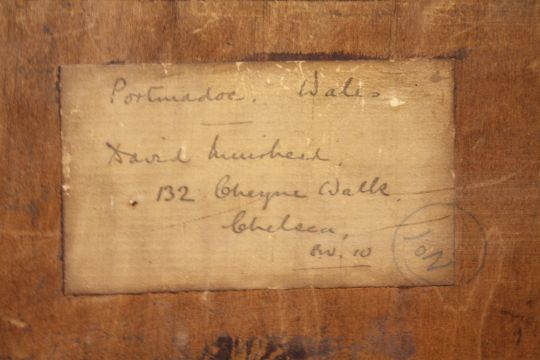 Portmadoc. Wales
David Muirhead.
132 Cheyne Walk.
Chelsea,
S.W. 10